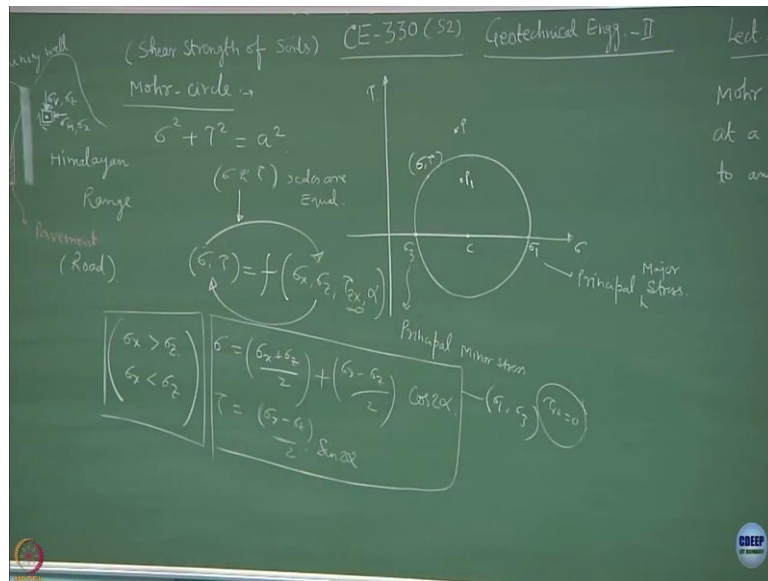 (Shear Strength of Soils) CE-330 (S2) Geotechnical Engg.-II Lect.
wall
Mohr-circle :→
σv, σz
σH, σx
Himalayan
Range
Pavement
(Road)
σ² + τ² = a²
(σ & τ) scales are
Equal.
(σ, τ) = f(σx, σz, τzx, α)
τ
P
(σ, τ)
P1
σ3
C
σ1
σ
Principal Major
Stress.
Principal Minor Stress
Mohr
at a
to an
σx > σz
σx < σz
σ = (σx+σz/2) + (σx-σz/2) Cos2α
τ = (σx-σz)/2 . Sin2α
(σ1, σ3) τxz=0
NPTEL
CDEEP
IIT BOMBAY